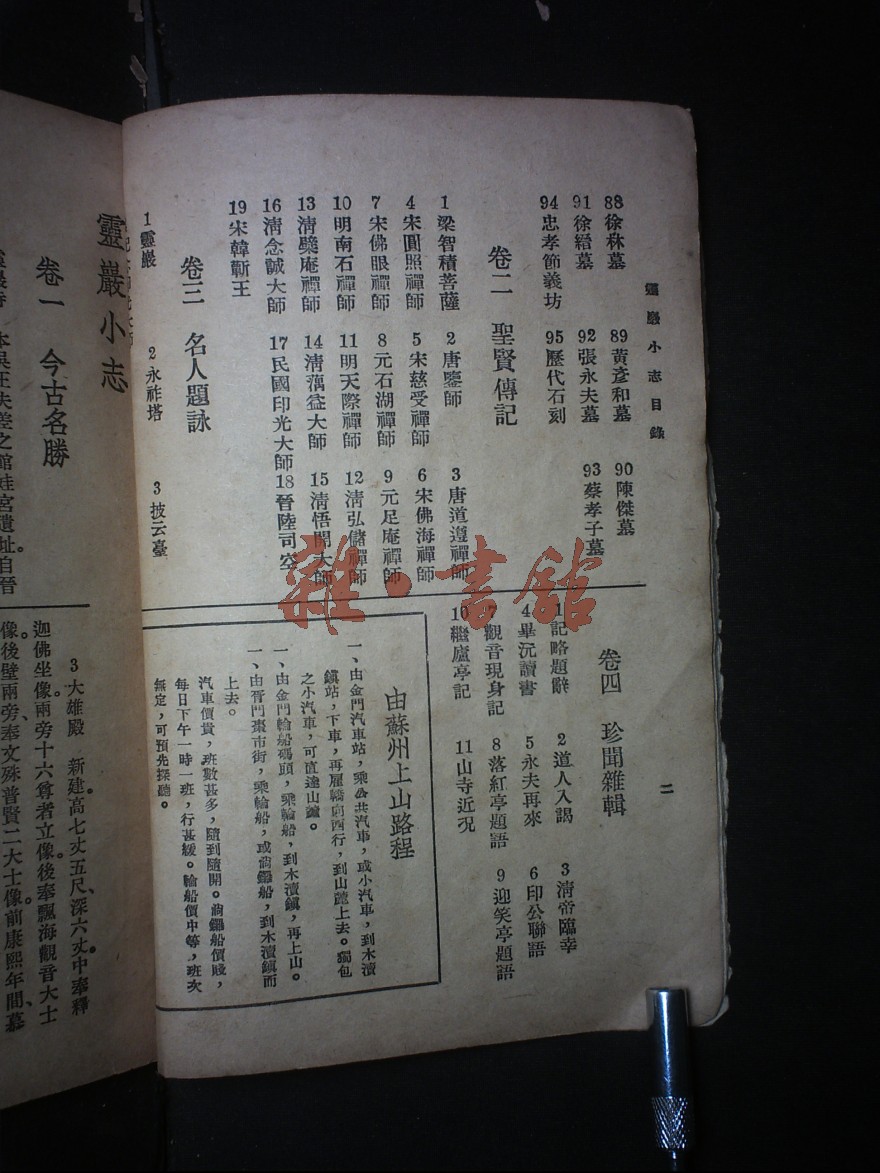 靈巖小志目錄
二
88徐林墓 89黃彥和墓 90陳傑墓
91徐縉墓 92張永夫墓 93蔡孝子墓
94忠孝節義坊 95歷代石刻
卷二 聖賢傳記
1梁智積菩薩 2唐鑒師 3唐道遵禪師
4宋圓照禪師 5宋慈受禪師 6宋佛海禪師
7宋佛眼禪師 8元石湖禪師 9元足庵禪師
10明南石禪師 11明天際禪師 12淸弘儲禪師
13淸檗庵禪師 14淸蕅益大師 15淸悟開大師
16淸念誠大師 17民國印光大師 18晉陸司空
19宋韓蘄王
卷三 名人題詠
1靈巖 2永祚塔 3披云臺
卷四 珍聞雜輯
1記略題辭 2道人入謁 3淸帝臨幸
4畢沅讀書 5永夫再來 6印公聯語
7觀音現身記 8落紅亭題語 9迎笑亭題語
10繼廬亭記 11山寺近況
由蘇州上山路程
一、由金門汽車站，乘公共汽車，或小汽車，到木瀆
鎮站，下車，再雇轎向西行，到山麓上去。獨包
之小汽車，可直達山麓。
一、由金門輪船碼頭，乘輪船，到木瀆鎮，再上山。
一、由胥門棗市街，乘輪船，或淌鑼船，到木瀆鎮而
上去。
汽車價貴，班數甚多，隨到隨開。淌鑼船價賤，
每日下午一時一班，行甚緩。輪船價中等，班次
無定，可預先探聽。
靈巖小志
卷一 今古名勝
本吳王夫差之館娃宮遺址。自晉
3大雄殿 新建高七丈五尺、深六丈中奉釋
迦佛坐像。兩旁十六尊者立像。後奉飄海觀音大士
像。後壁兩旁、奉文殊普賢二大士像。前康熙年間、慕
雜·書館